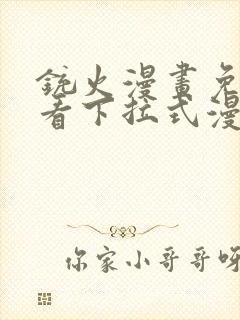 銃火漫畫免
看下拉式漫
你家小哥哥呀